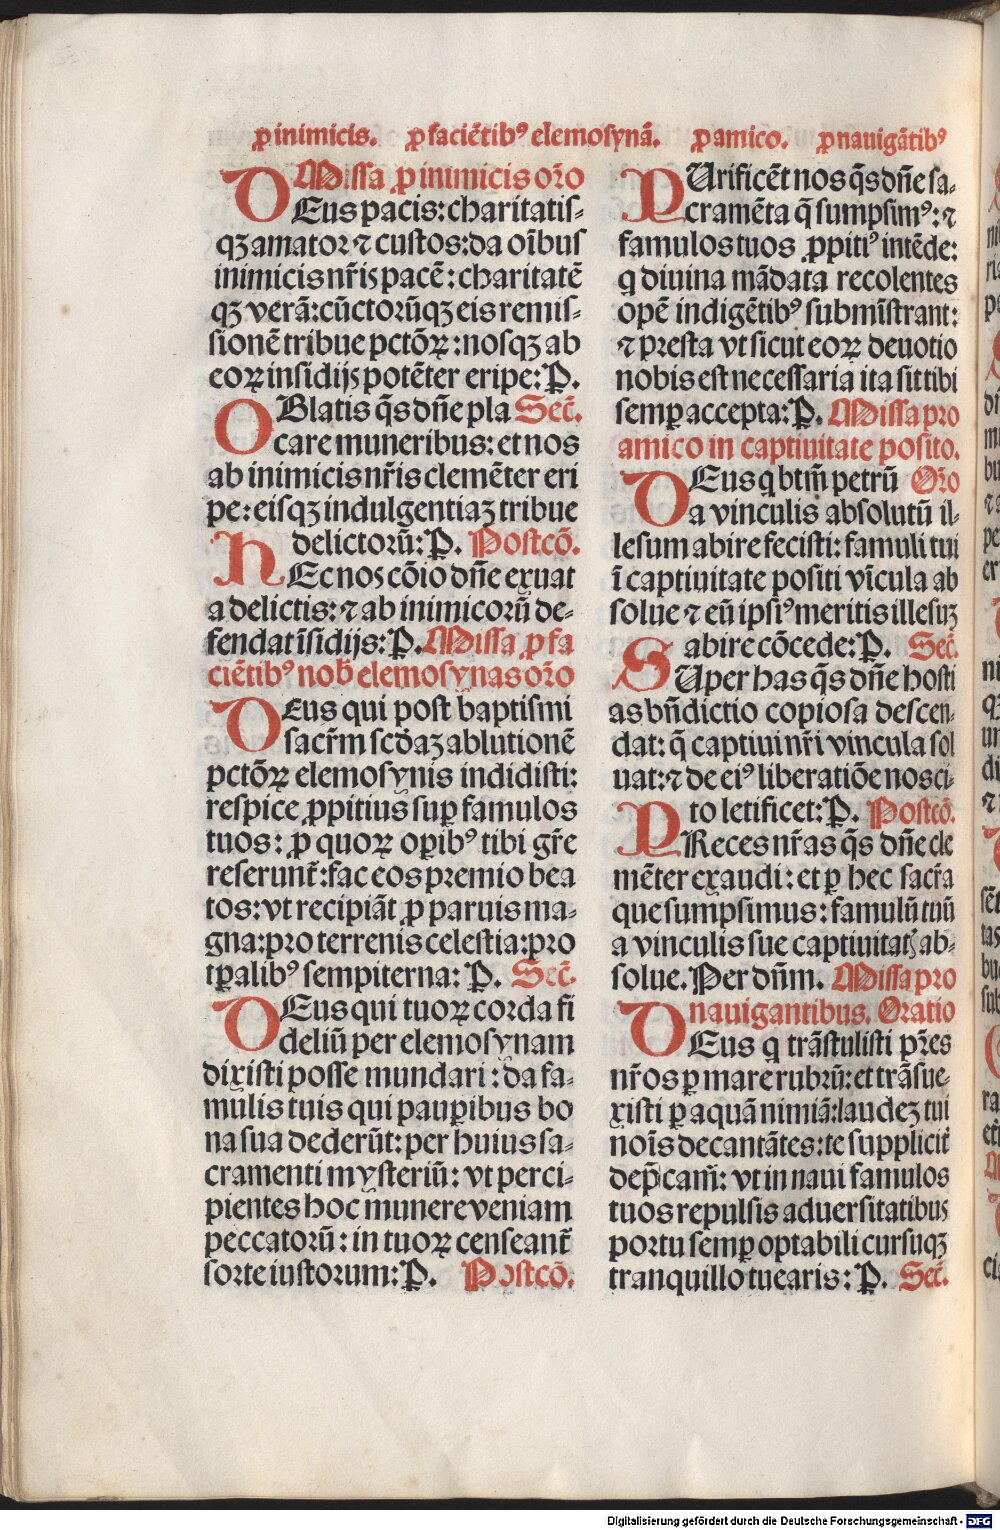 ꝓ inimicis. ꝓ faciētibꝰ elemosynā. ꝓ amico. ꝓ nauigātibꝰ
Missa ꝓ inimicis oŕo
DEus pacis: charitatis-
qꝫ amator ⁊ custos: da oībus
inimicis nr̄is pacē: charitatē
qꝫ verā: cūctorūqꝫ eis remis-
sionē tribue pctōꝝ: nosqꝫ ab
eoꝝ insidijs potēter eripe: P.
OBlatis q̄s dn̄e pla Sec̄.
care muneribus: et nos
ab inimicis nr̄is clemēter eri
pe: eisqꝫ indulgentiaꝫ tribue
delictorū: P. Postcō.
HEc nos cōio dn̄e exuat
a delictis: ⁊ ab inimicorū de-
fendat īsidijs: P. Missa ꝓ fa
ciētibꝰ nob̄ elemosynas oŕo
DEus qui post baptismi
sacr̄m scd̄aꝫ ablutionē
pctōꝝ elemosynis indidisti:
respice ꝓpitius suꝑ famulos
tuos: ꝓ quoꝝ oꝑibꝰ tibi gr̄e
referunt̄: fac eos premio bea
tos: vt recipiāt ꝓ paruis ma-
gna: pro terrenis celestia: pro
tꝑalibꝰ sempiterna: P. Sec̄.
DEus qui tuoꝝ corda fi
deliū per elemosynam
dixisti posse mundari: da fa-
mulis tuis qui pauꝑibus bo
na sua dederūt: per huius sa-
cramenti mysteriū: vt perci-
pientes hoc munere veniam
peccatorū: in tuoꝝ censeant̄
sorte iustorum: P. Postcō.
PUrificēt nos q̄s dn̄e sa-
cramēta q̄ sumpsimꝰ: ⁊
famulos tuos ꝓpitiꝰ intēde:
q diuina mādata recolentes
opē indigētibꝰ submīstrant:
⁊ presta vt sicut eoꝝ deuotio
nobis est necessaria ita sit tibi
semꝑ accepta: P. Missa pro
amico in captiuitate posito.
DEus q btm̄ petrū Oŕo
a vinculis absolutū il-
lesum abire fecisti: famuli tui
ī captiuitate positi vīcula ab
solue ⁊ eū ipsiꝰ meritis illesuꝫ
abire cōcede: P. Sec̄.
SUper has q̄s dn̄e hosti
as bn̄dictio copiosa descen-
dat: q̄ captiui nr̄i vincula sol
uat: ⁊ de eiꝰ liberatiōe nos ci-
to letificet: P. Postcō.
PReces nr̄as q̄s dn̄e cle
mēter exaudi: et ꝑ hec sacr̄a
que sumpsimus: famulū tuū
a vinculis sue captiuitatꝭ ab-
solue. Per dn̄m. Missa pro
nauigantibus. Oratio
DEus q trāstulisti pr̄es
nr̄os ꝑ mare rubrū: et trāsue-
xisti ꝑ aquā nimiā: laudeꝫ tui
noīs decantātes: te supplicit̄
dep̄cam̄: vt in naui famulos
tuos repulsis aduersitatibus
portu semꝑ optabili cursuqꝫ
tranquillo tuearis: P. Sec̄.
Digitalisierung gefördert durch die Deutsche Forschungsgemeinschaft - DFG